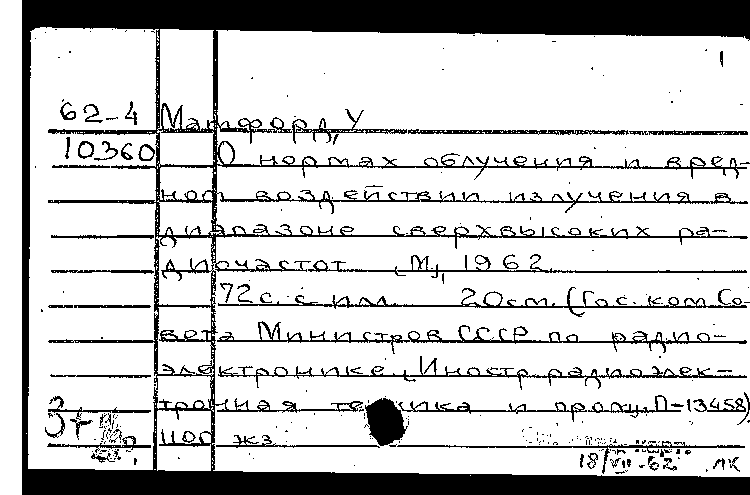 1
62-4 Матфорд, У
10360 О нормах облучения и вред-
ном воздействии излучения в
диапазоне сверхвысоких ра-
диочастот [М], 1962
72 с. с илл. 20 см. (Гос. ком. Со-
вета Министров СССР по радио-
электронике. Иностр. радиоэлек-
тронная техника и П-13458)
1100 экз
18/VII-62 ЛК